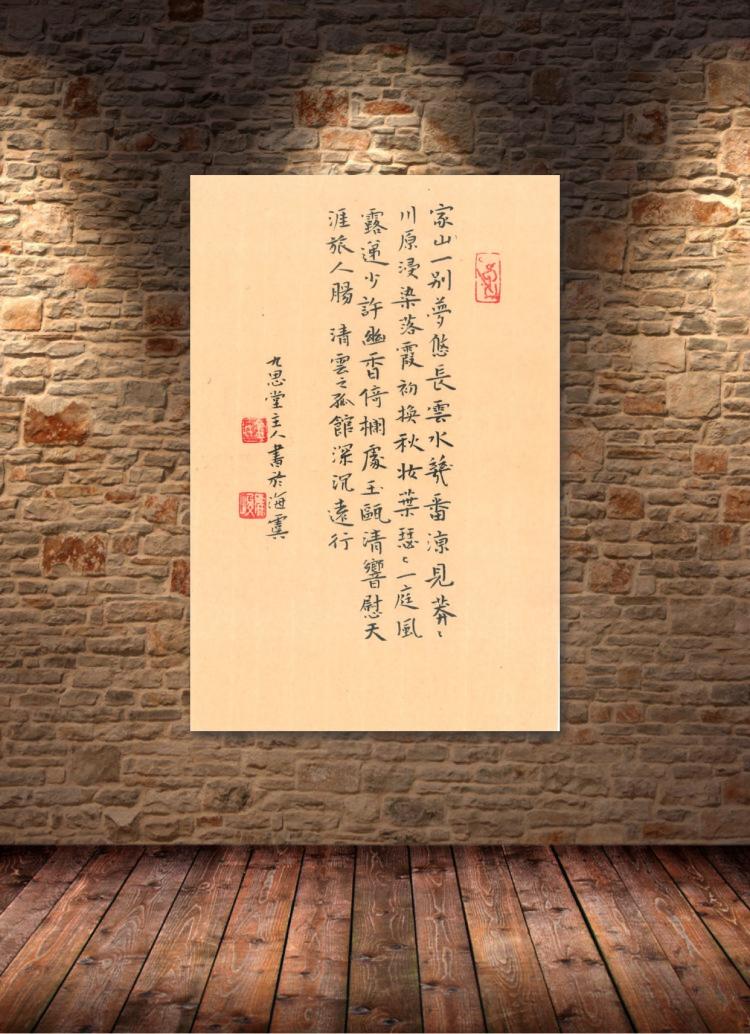 家山一別夢悠長雲水幾番涼見莽〻
川原浸染落霞初換秋妝葉瑟〻一庭風
露遞少許幽香倚欄處玉甌清響慰天
涯旅人腸 清雲之孤館深沉遠行
九思堂主人書於海虞